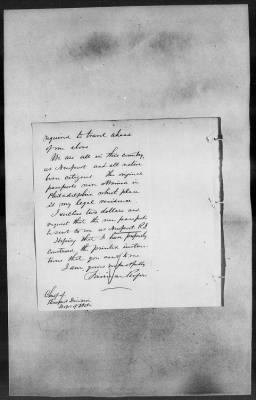 required to travel abroad
of me alone
We are all in this country,
at Newport and all native
born citizens. The original
passports were obtained in
Philadelphia which place
is my legal residence.
I enclose two dollars and
request that the new passport
be sent to me at Newport R.I.
Hoping that I have properly
the printed instruc-
tions that you sent to me
I am yours respectfully
Chief of
Passport Division